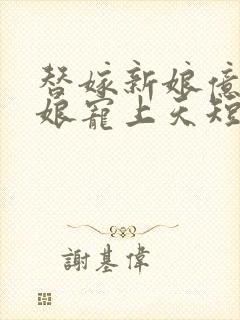 替嫁新娘億
娘寵上天短
謝基偉